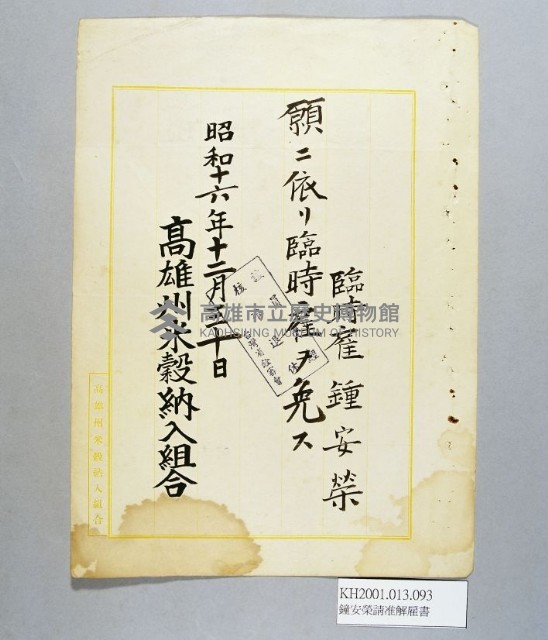 臨時雇 鍾安榮
願ニ依リ臨時雇ヲ免ス
昭和十六年十二月 十日
高雄州米穀納入組合
高雄州米穀納入組合
高雄市立歷史博物館
KAOHSIUNG MUSEUM OF HISTORY
KH2001.013.093
鐘安榮請准解雇書